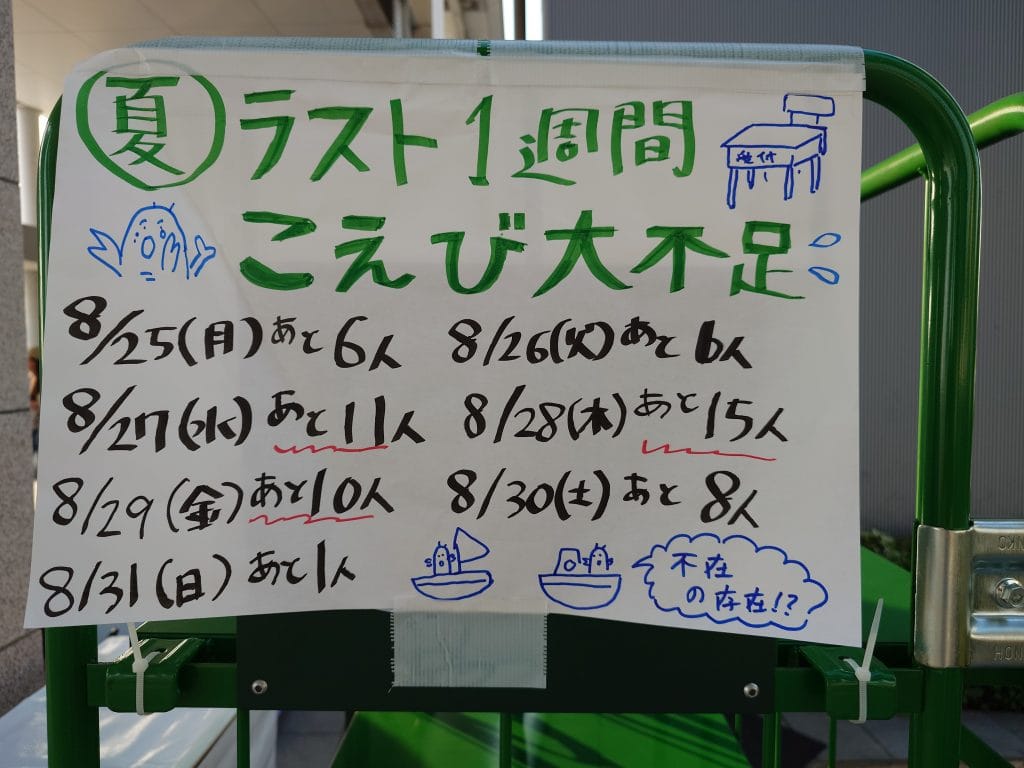 夏 ラスト1週間
受付
こえび大不足
8/25(月)あと6人 8/26(火)あと6人
8/27(水)あと11人 8/28(木)あと15人
8/29(金)あと10人 8/30(土)あと8人
8/31(日)あと1人
不在
の存在!?